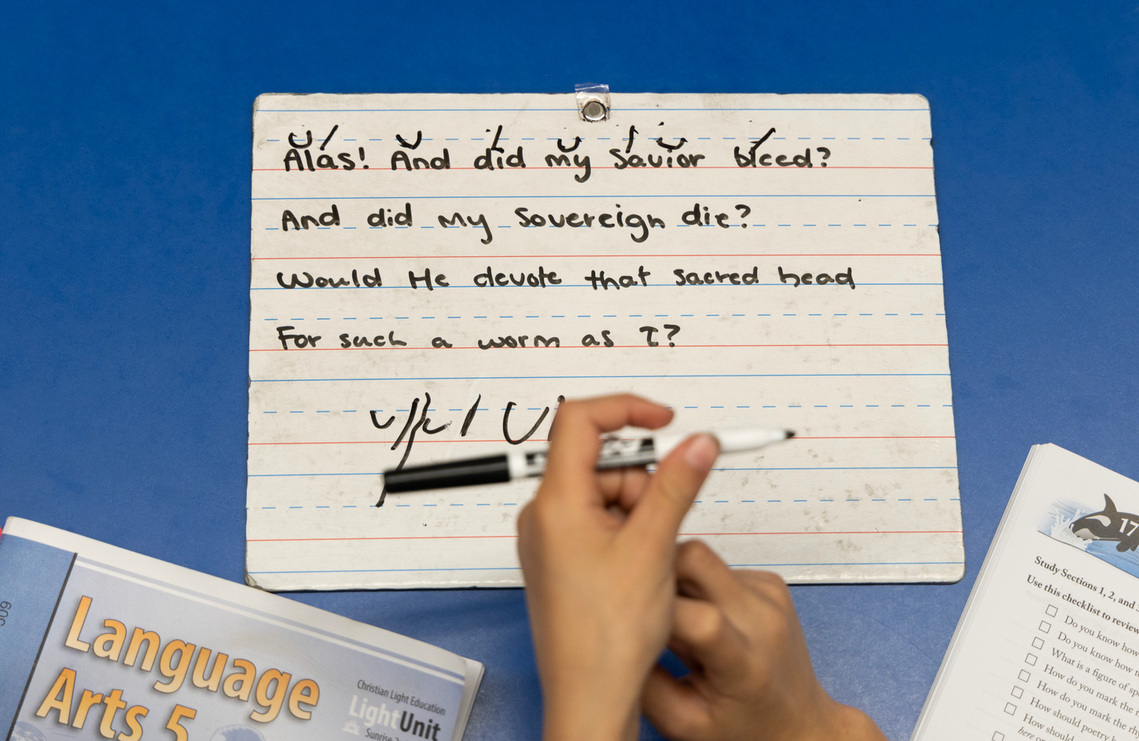 Alas! And did my Savior bleed?
And did my Sovereign die?
Would He devote that sacred head
For such a worm as I?
Language
Arts 5
Christian Light Education
LightUnit
Sunrise
509
17
Study Sections 1, 2, and
Use this checklist to review
Do you know how
Do you know how
What is a figure of
How do you mark the
How do you mark the
How should poetry
How should
here